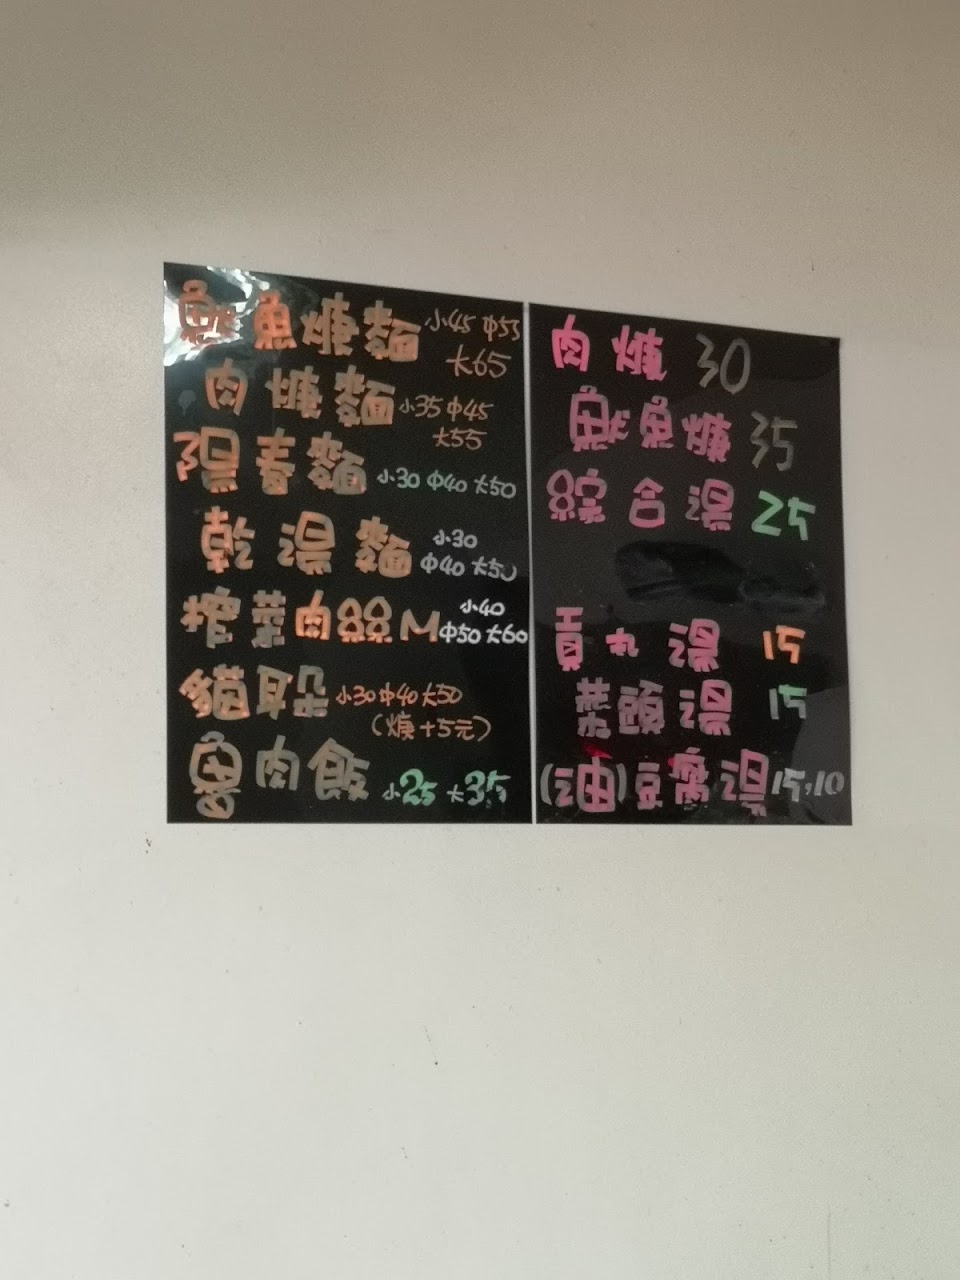 魷魚焿麵 小45 中55
大65
肉焿麵 小35 中45
大55
陽春麵 小30 中40 大50
乾湯麵 小30
中40 大50
榨菜肉絲M 小40
中50 大60
貓耳朵 小30 中40 大50
(焿+5元)
魯肉飯 小25 大35
肉焿 30
魷魚焿 35
綜合湯 25
貢丸湯 15
菜頭湯 15
(油)豆腐湯 15,10